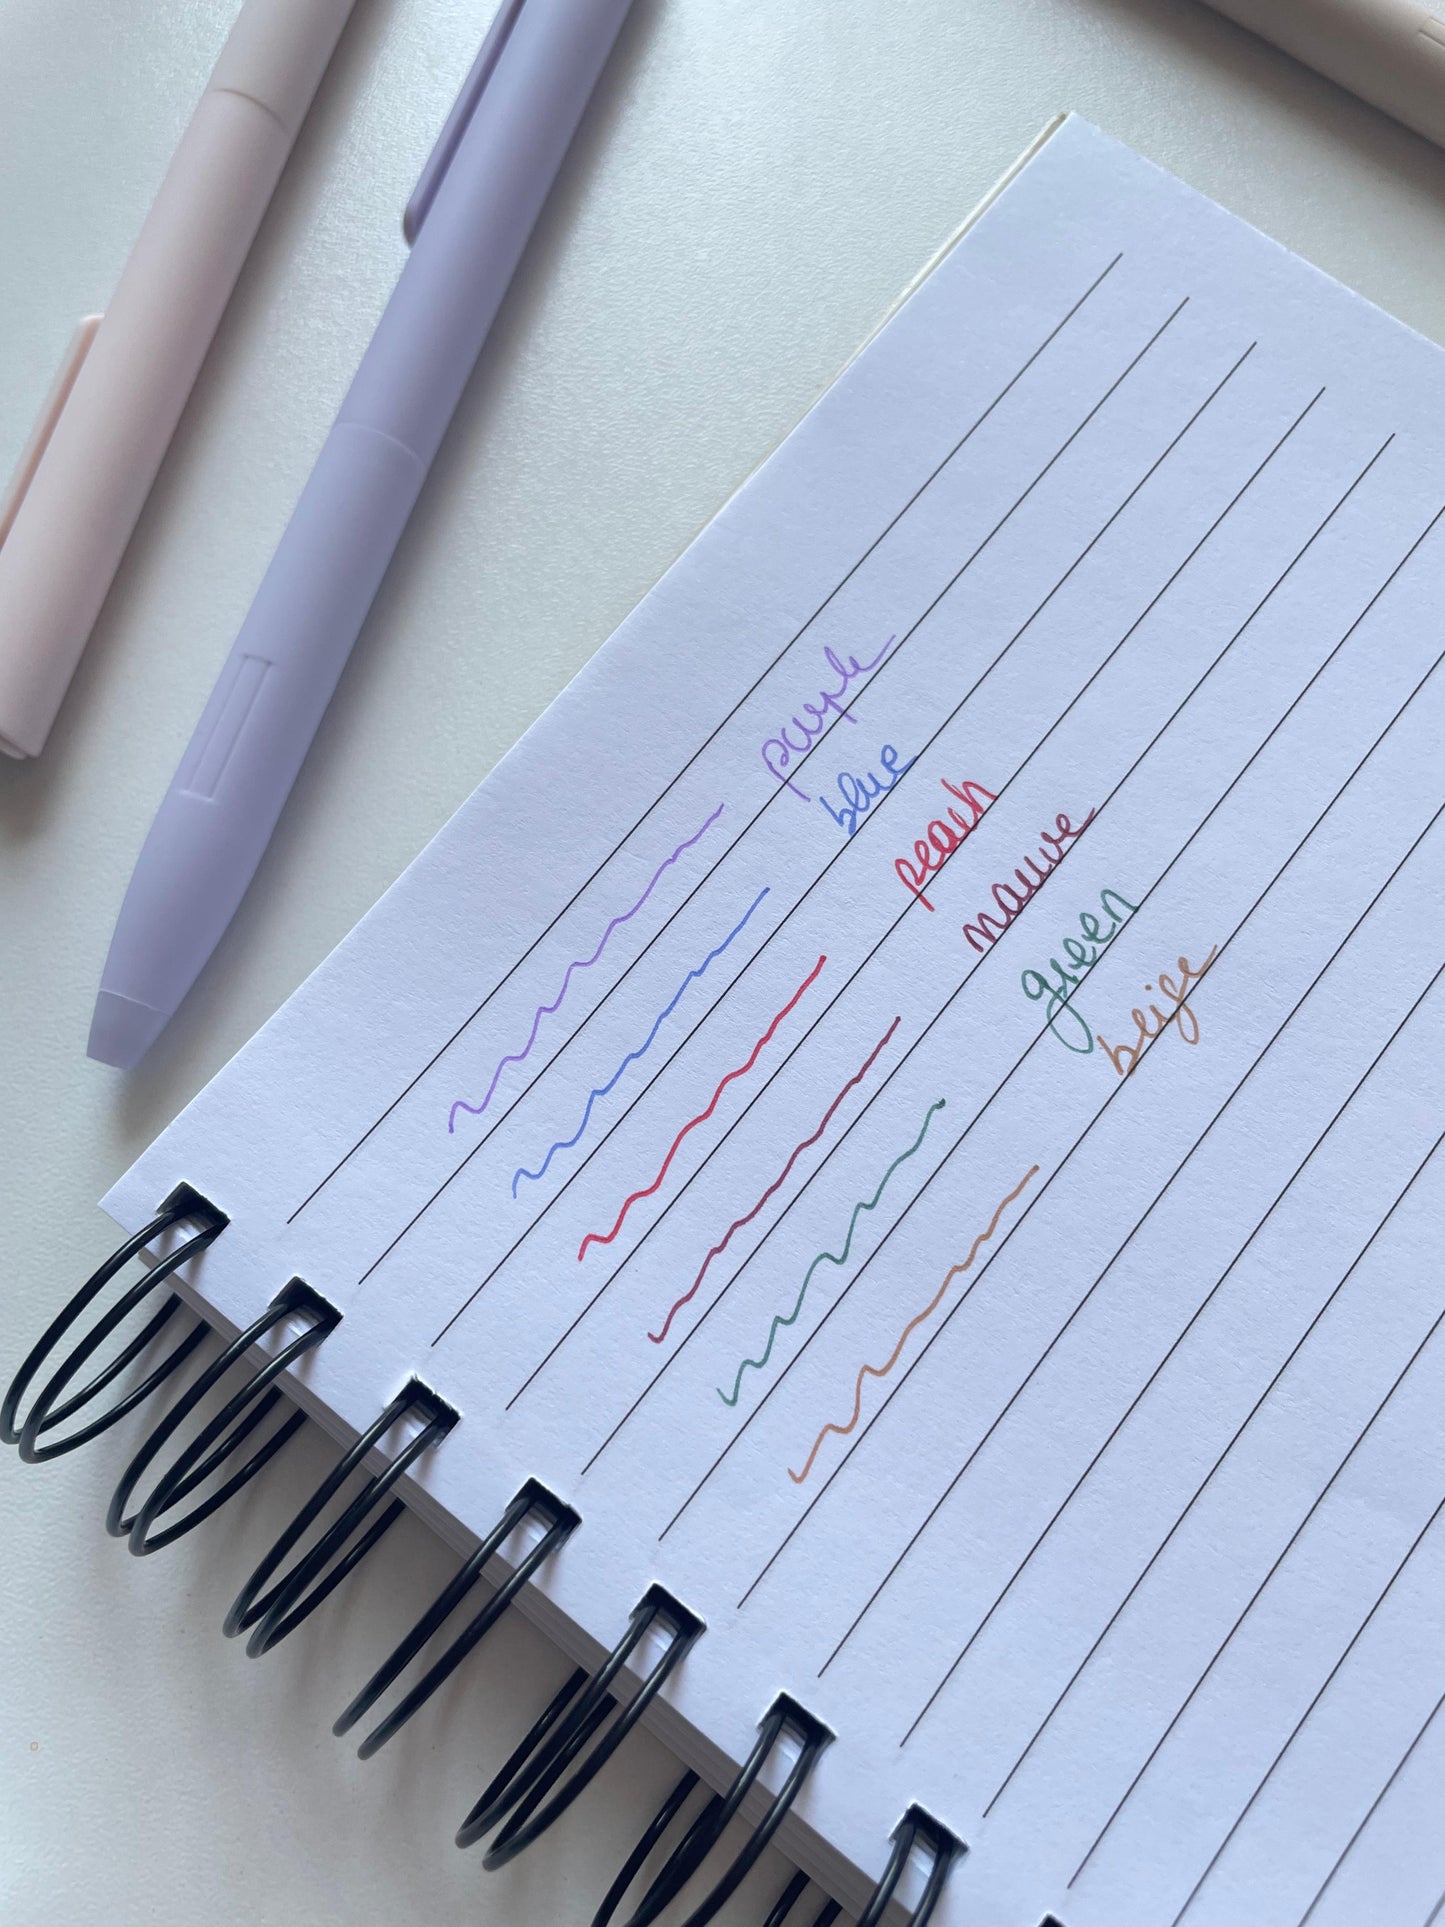 purple
blue
peach
mauve
green
beige